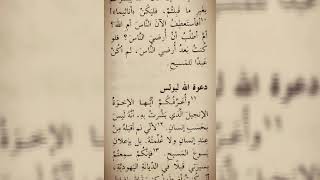 بِغَيرِ ما قَبِلتُمْ، فَليَكُنْ «أناثيما»!
١٠أفأستَعطِفُ الآنَ النَّاسَ أمِ اللهَ؟
أمْ أطلُبُ أنْ أُرضيَ النَّاسَ؟ فلو
كُنتُ بَعدُ أُرضي النَّاسَ، لم أكُنْ
عَبدًا للمَسيحِ.
دعوة الله لبولس
١١وأُعَرِّفُكُمْ أيُّها الإخوَةُ
الإنجيلَ الّذي بَشَّرتُ بهِ، أنَّهُ ليس
بحَسَبِ إنسانٍ. ١٢لأنّي لم أقبَلهُ مِنْ
عِندِ إنسانٍ ولا عُلِّمتُهُ. بل بإعلانِ
يَسوعَ المَسيحِ. ١٣فإنَّكُمْ سمِعتُمْ
بسيرَتي قَبلًا في الدّيانَةِ اليَهوديَّةِ،